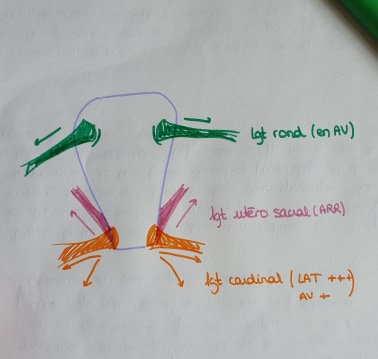 lgt rond (en AV)
lgt utéro sacral (ARR)
lgt cardinal (LAT +++)
AV +